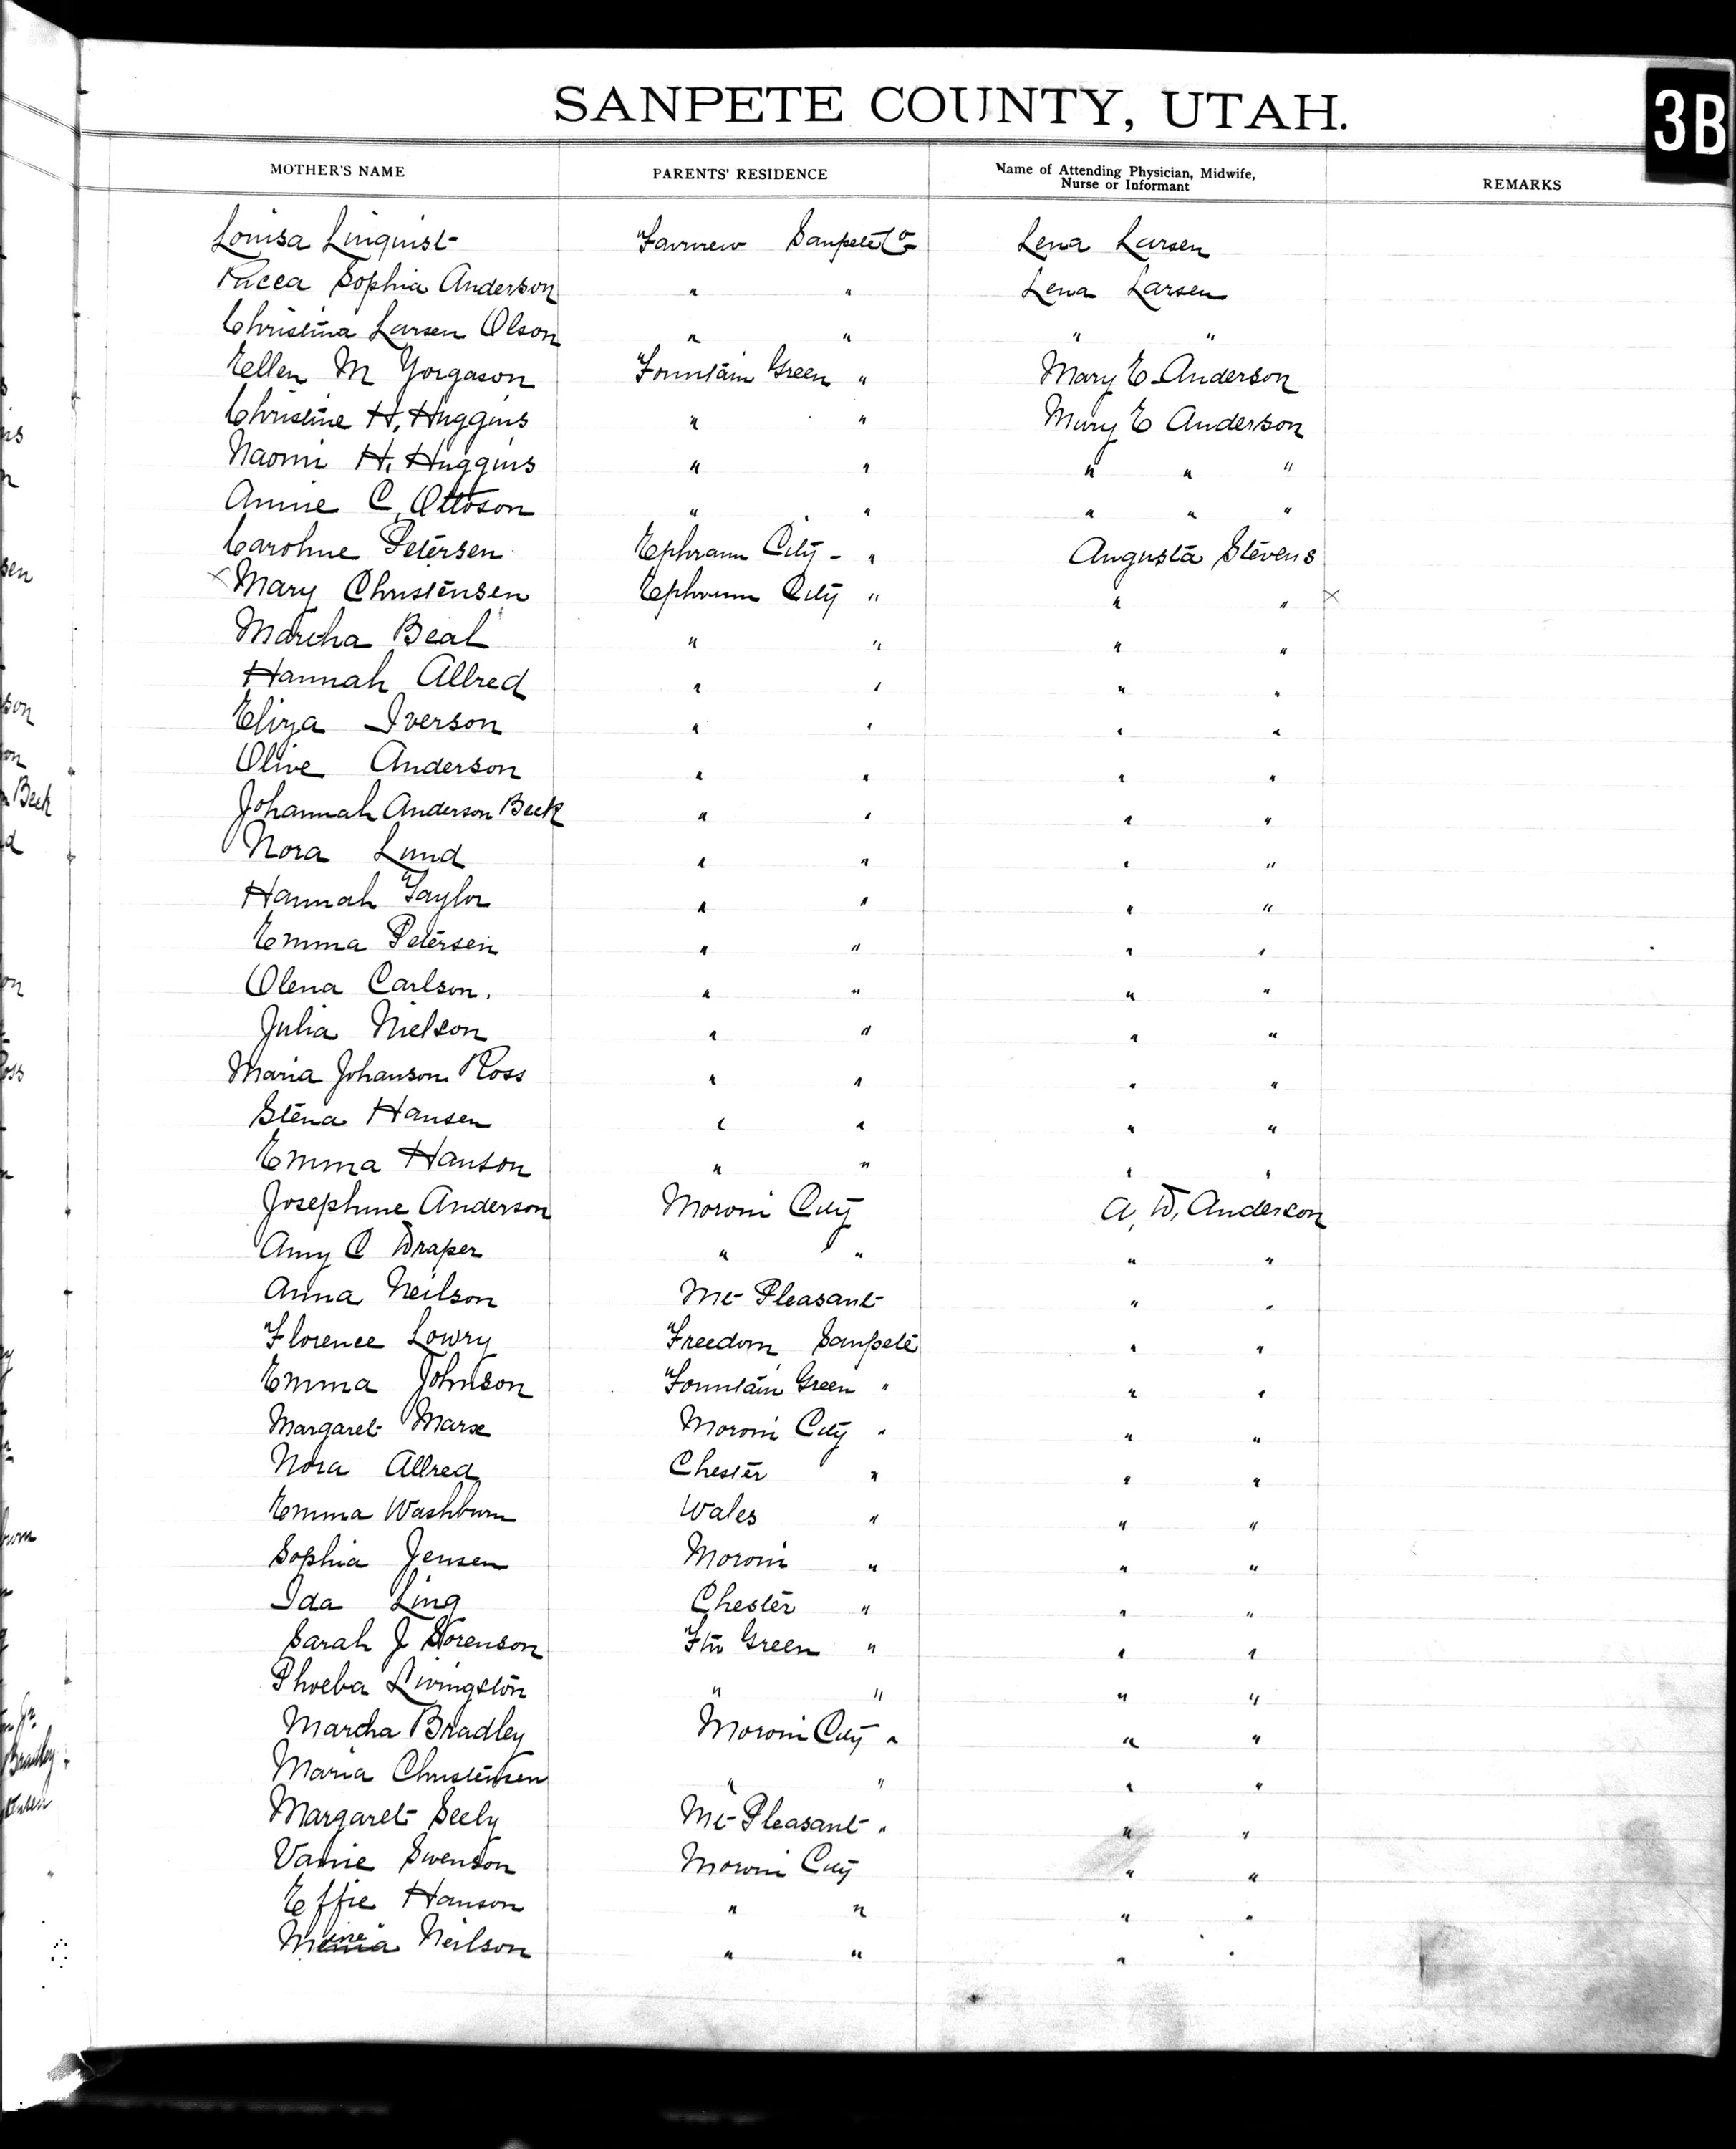 SANPETE COUNTY, UTAH.
3B
MOTHER'S NAME PARENTS' RESIDENCE Name of Attending Physician, Midwife, Nurse or Informant REMARKS
Louisa Linquist Fairview Sanpete Co Lena Larsen
Sophia Anderson " " Lena Larsen
Christina Larsen Olson " " " "
Ellen M Yorgason Fountain Green " Mary E Anderson
Christine H. Huggins " " Mary E Anderson
Naomi H. Huggins " " " " "
Annie C. Ottoson " " " " "
Caroline Petersen Ephraim City - " Augusta Stevens
x Mary Christensen Ephraim City " " " x
Martha Beal " " " "
Hannah Allred " " " "
Eliza Iverson " " " "
Olive Anderson " " " "
Johannah Anderson Beck " " " "
Nora Lund " " " "
Hannah Taylor " " " "
Emma Petersen " " " "
Olena Carlson. " " " "
Julia Nielson " " " "
Maria Johanson Ross " " " "
Stena Hansen " " " "
Emma Hanson " " " "
Josephine Anderson Moroni City A. D. Anderson
Amy C Draper " " " "
Anna Neilson Mt Pleasant " "
Florence Lowry Freedom Sanpete " "
Emma Johnson Fountain Green " " "
Margaret Marx Moroni City " " "
Nora Allred Chester " " "
Emma Washburn Wales " " "
Sophia Jensen Moroni " " "
Ida Ling Chester " " "
Sarah J Sorenson Ftn Green " " "
Phoeba Livingston " " " "
Martha Bradley Moroni City " " "
Maria Christensen " " " "
Margaret Seely Mt Pleasant " " "
Vanie Swenson Moroni City " "
Effie Hanson " " " "
Neilson " " " "